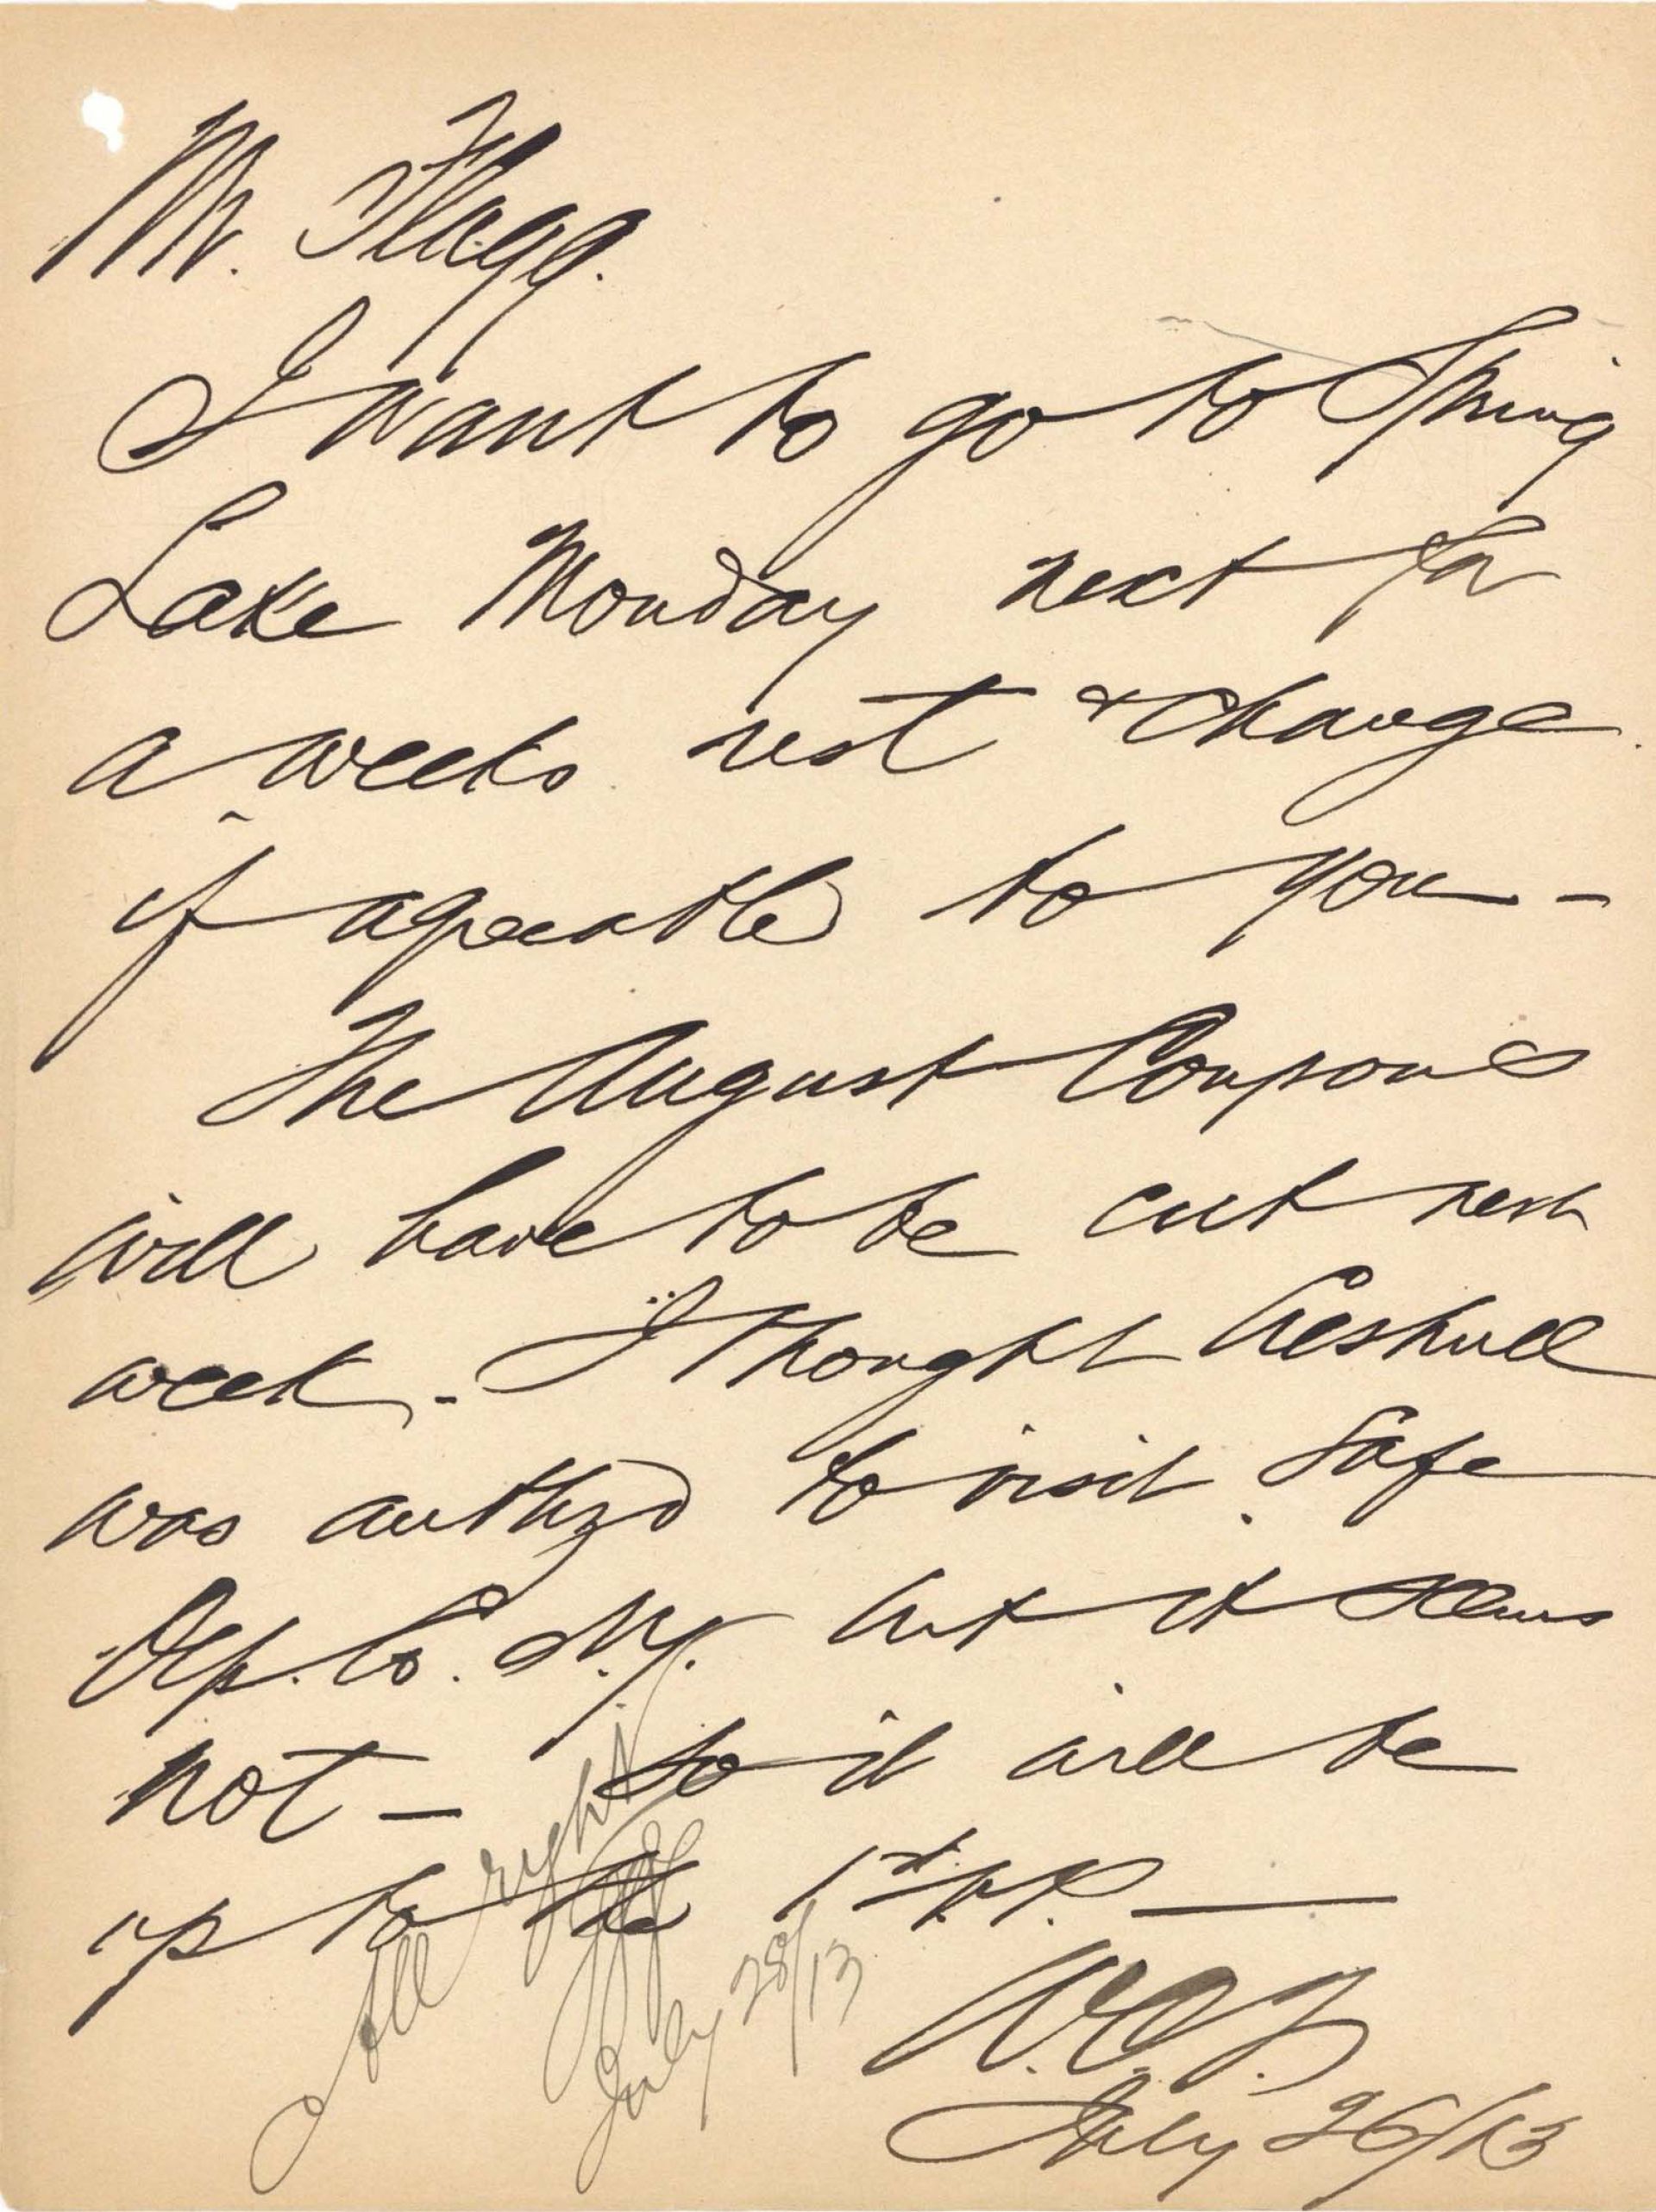 Mr. Flagg.
I want to go to Spring
Lake Monday next for
a weeks rest & change
if agreeable to you -
The August Coupons
will have to be cut next
week. - I thought
was authzd to visit Safe
Dep. Co. N.Y. but it seems
not - so it will be
up to the 1st V.P. -
All right
July 28/13
July 26/13